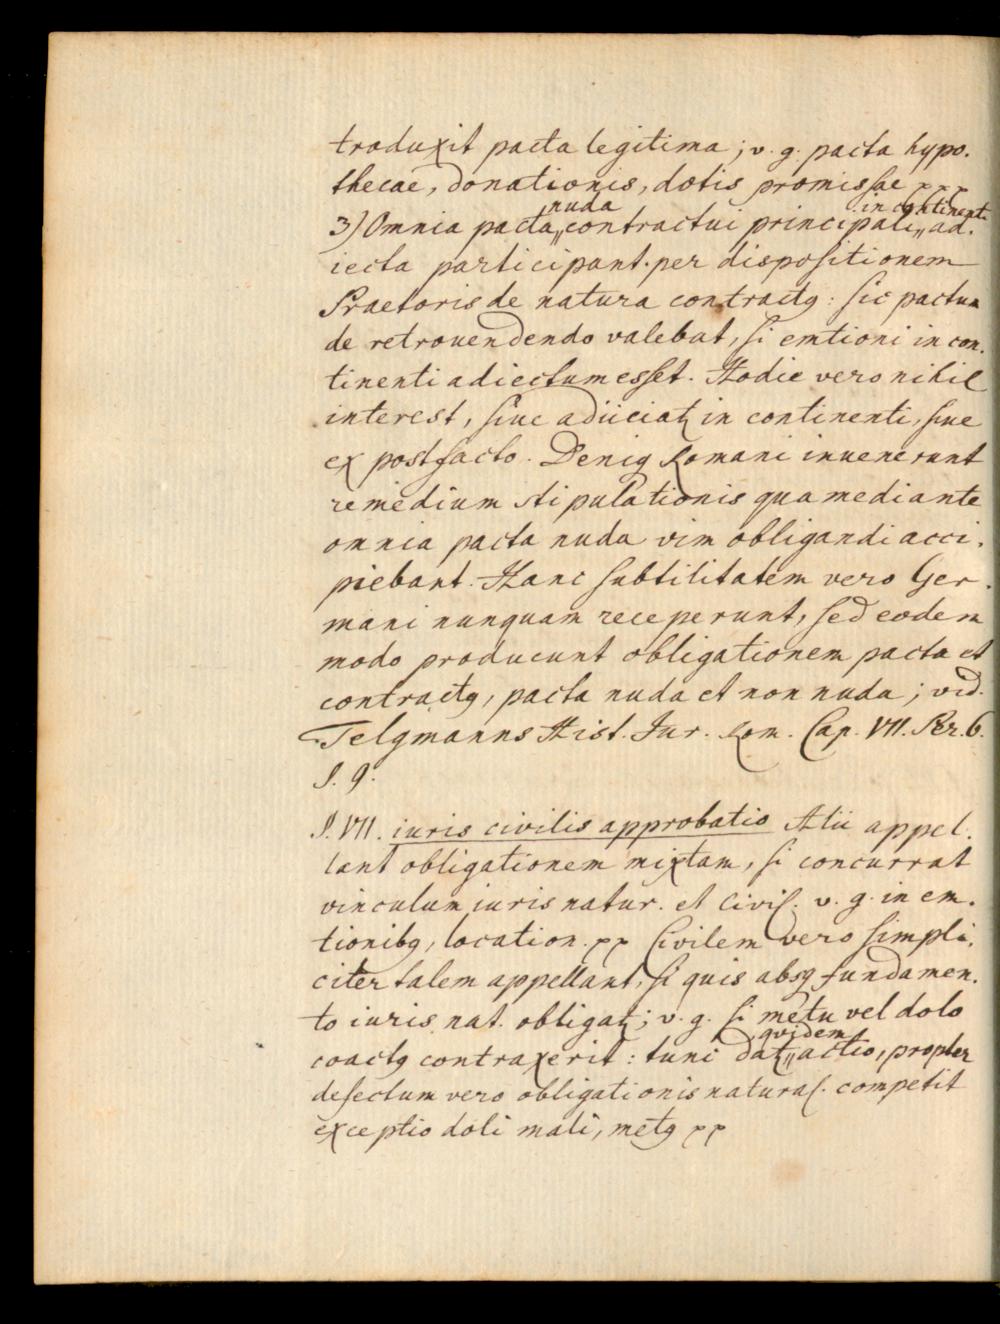 traduxit pacta legitima; v. g. pacta hypo-
thecae, donationis, dotis promissae ppp
3) Omnia pacta nuda contractui principali in continenti ad-
iecta participant per dispositionem
Praetoris de natura contractq: sic pactum
de retrouendendo valebat, si emtioni in con-
tinenti adiectum esset. Hodie vero nihil
interest, siue adiiciatʒ in continenti, siue
ex post facto. Deniq Romani inuenerunt
remedium stipulationis qua mediante
omnia pacta nuda vim obligandi acci-
piebant. Hanc subtilitatem vero Ger-
mani nunquam receperunt, sed eodem
modo producunt obligationem pacta et
contractq, pacta nuda et non nuda; vid.
Telgmanns Hist. Jur. Rom. Cap. VII. Per. 6.
§. 9.
§. VII. iuris civilis approbatio Alii appel-
lant obligationem mixtam, si concurrat
vinculum iuris natur. et civil. v. g. in em-
tionibq, location. pp Civilem vero simpli-
citer talem appellant, si quis absq fundamen-
to iuris nat. obligatʒ; v. g. si metu vel dolo
coactq contraxerit: tunc datʒ qvidem actio, propter
defectum vero obligationis natural. competit
exceptio doli mali, metq pp